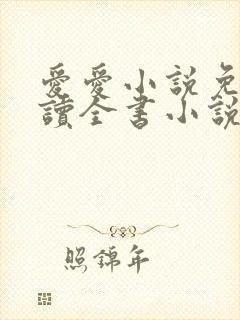 愛愛小說免
讀全書小說
照錦年